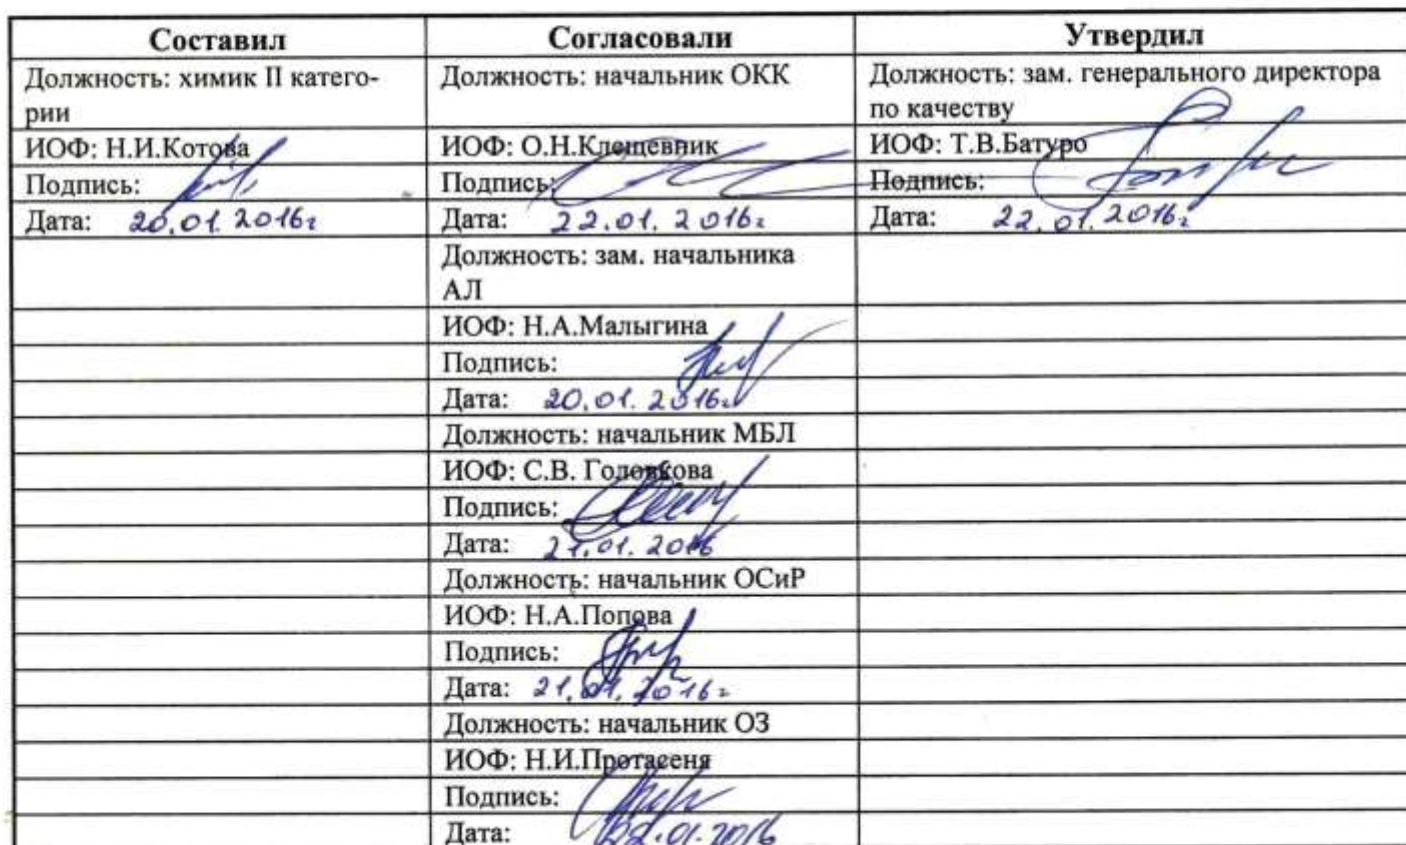 Составил Согласовали Утвердил
Должность: химик II катего- Должность: начальник ОКК Должность: зам. генерального директора
рии по качеству
ИОФ: Н.И.Котова ИОФ: О.Н.Клещевник ИОФ: Т.В.Батуро
Подпись: Подпись: Подпись:
Дата: 20.01.2016г Дата: 22.01.2016г Дата: 22.01.2016г
Должность: зам. начальника
АЛ
ИОФ: Н.А.Малыгина
Подпись:
Дата: 20.01.2016г
Должность: начальник МБЛ
ИОФ: С.В. Головкова
Подпись:
Дата: 21.01.2016
Должность: начальник ОСиР
ИОФ: Н.А.Попова
Подпись:
Дата: 21.01.2016г
Должность: начальник ОЗ
ИОФ: Н.И.Протасеня
Подпись:
Дата: 22.01.2016